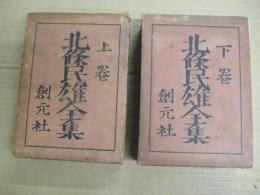 上巻
北條民雄全集
創元社
下巻
北條民雄全集
創元社